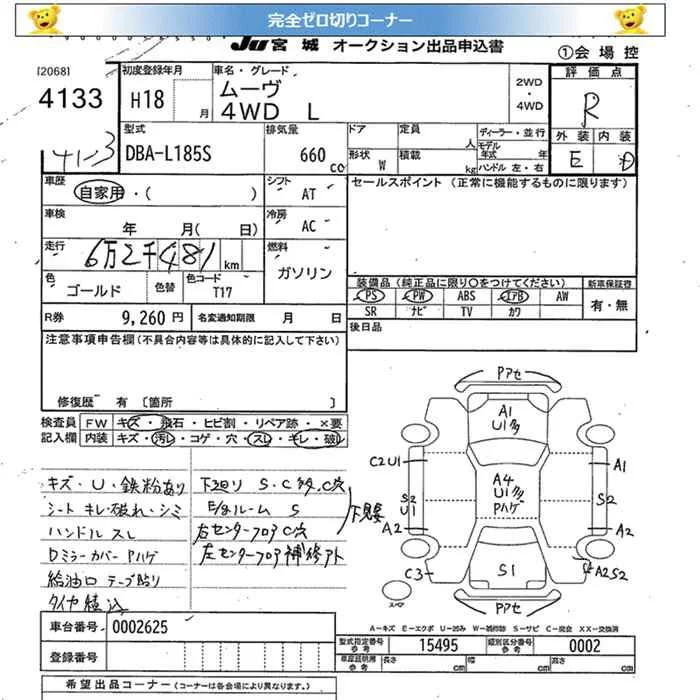 完全ゼロ切りコーナー
JU宮城 オークション出品申込書
①会場控
[2068]
4133
41-3
初度登録年月
H18 月
車名・グレード
ムーヴ
4WD L
2WD
・
4WD
評価点
R
外装 内装
E D
型式
DBA-L185S
排気量
660 cc
ドア 定員 人
形状 W 積載 kg
ディーラー・並行
モデル年式 年
ハンドル 左・右
車歴
自家用・( )
シフト
AT
車検
年 月( 日)
冷房
AC
走行
6万2千481 km
燃料
ガソリン
色
ゴールド
色替
色コード
T17
R券 9,260 円
名変通知期限 月 日
セールスポイント (正常に機能するものに限ります)
装備品 (純正品に限り○をつけてください)
新車保証書
PS PW ABS エアB AW
SR ナビ TV カワ
有・無
後日品
注意事項申告欄(不具合内容等は具体的に記入して下さい)
修復歴 有 〔箇所 〕
検査員記入欄
FW キズ・飛石・ヒビ割・リペア跡・×要
内装 キズ・汚レ・コゲ・穴・スレ・キレ・破レ
キズ・U・鉄粉あり
シート キレ・破れ・シミ
ハンドル スレ
Dミラーカバー Pハゲ
給油口 テープ貼り
タイヤ積込
下廻り S・C多,C穴
E/gルーム S
右センターフロアC穴
左センターフロア補修アト
下見要
Pアセ
A1
U1多
C2U1
A1
A4
U1多
Pハゲ
S2
U1
S2
A2
A2
C3
S1
A2S2
スペア
Pアセ
A-キズ E-エクボ U-凹み W-補修跡 S-サビ C-腐食 XX-交換済
車台番号 0002625
登録番号
型式指定番号 参考 15495
類別区分番号 参考 0002
車庫証明用 参考 長さ cm 幅 cm 高さ cm
希望出品コーナー (コーナーは各会場により異なります)